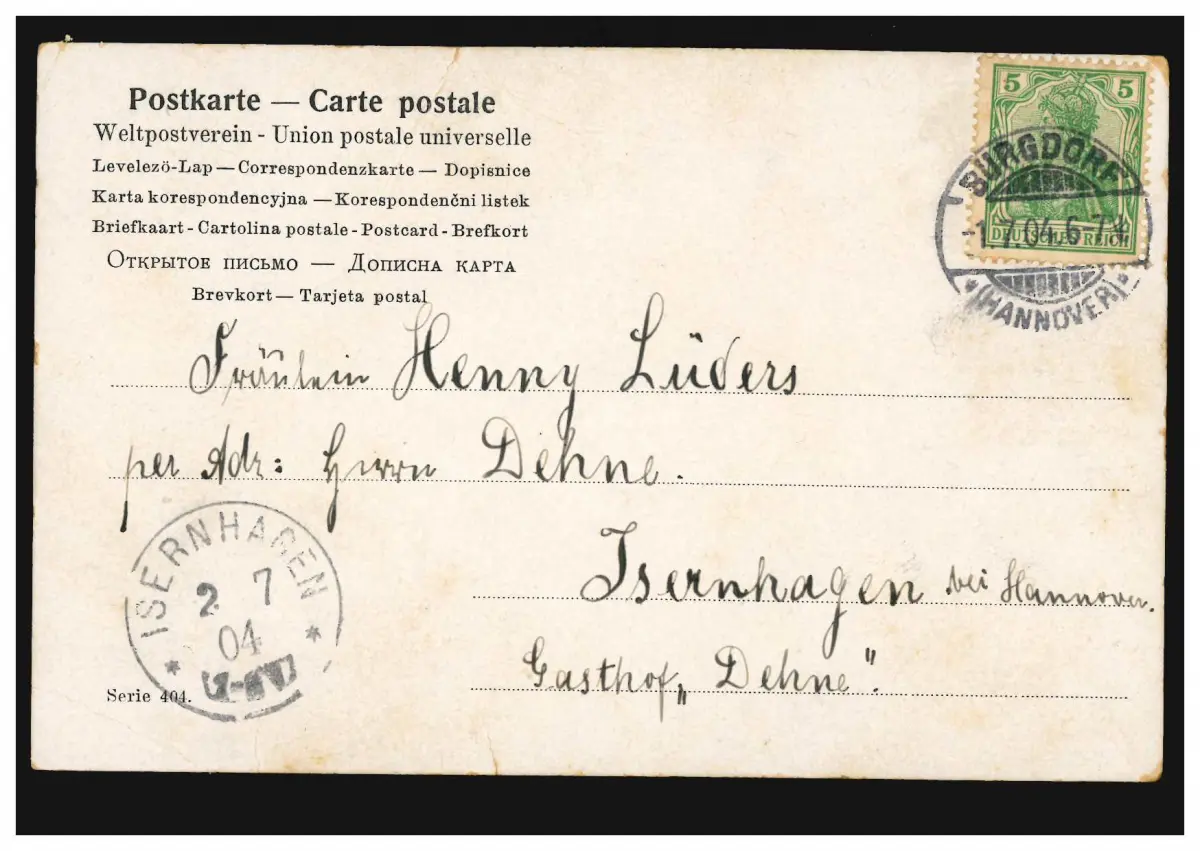 Postkarte — Carte postale
Weltpostverein - Union postale universelle
Levelezö-Lap — Correspondenzkarte — Dopisnice
Karta korespondencyjna — Korespondenčni listek
Briefkaart - Cartolina postale - Postcard - Brefkort
Открытое письмо — Дописна карта
Brevkort — Tarjeta postal
5 5
DEUTSCHES REICH
BURGDORF
-1.7.04.6-7N
* (HANNOVER) *
Fräulein Henny Lüders
per Adr: Herrn Dehne.
Isernhagen bei Hannover.
Gasthof „Dehne".
ISERNHAGEN
2 7
04
* *
Serie 404.